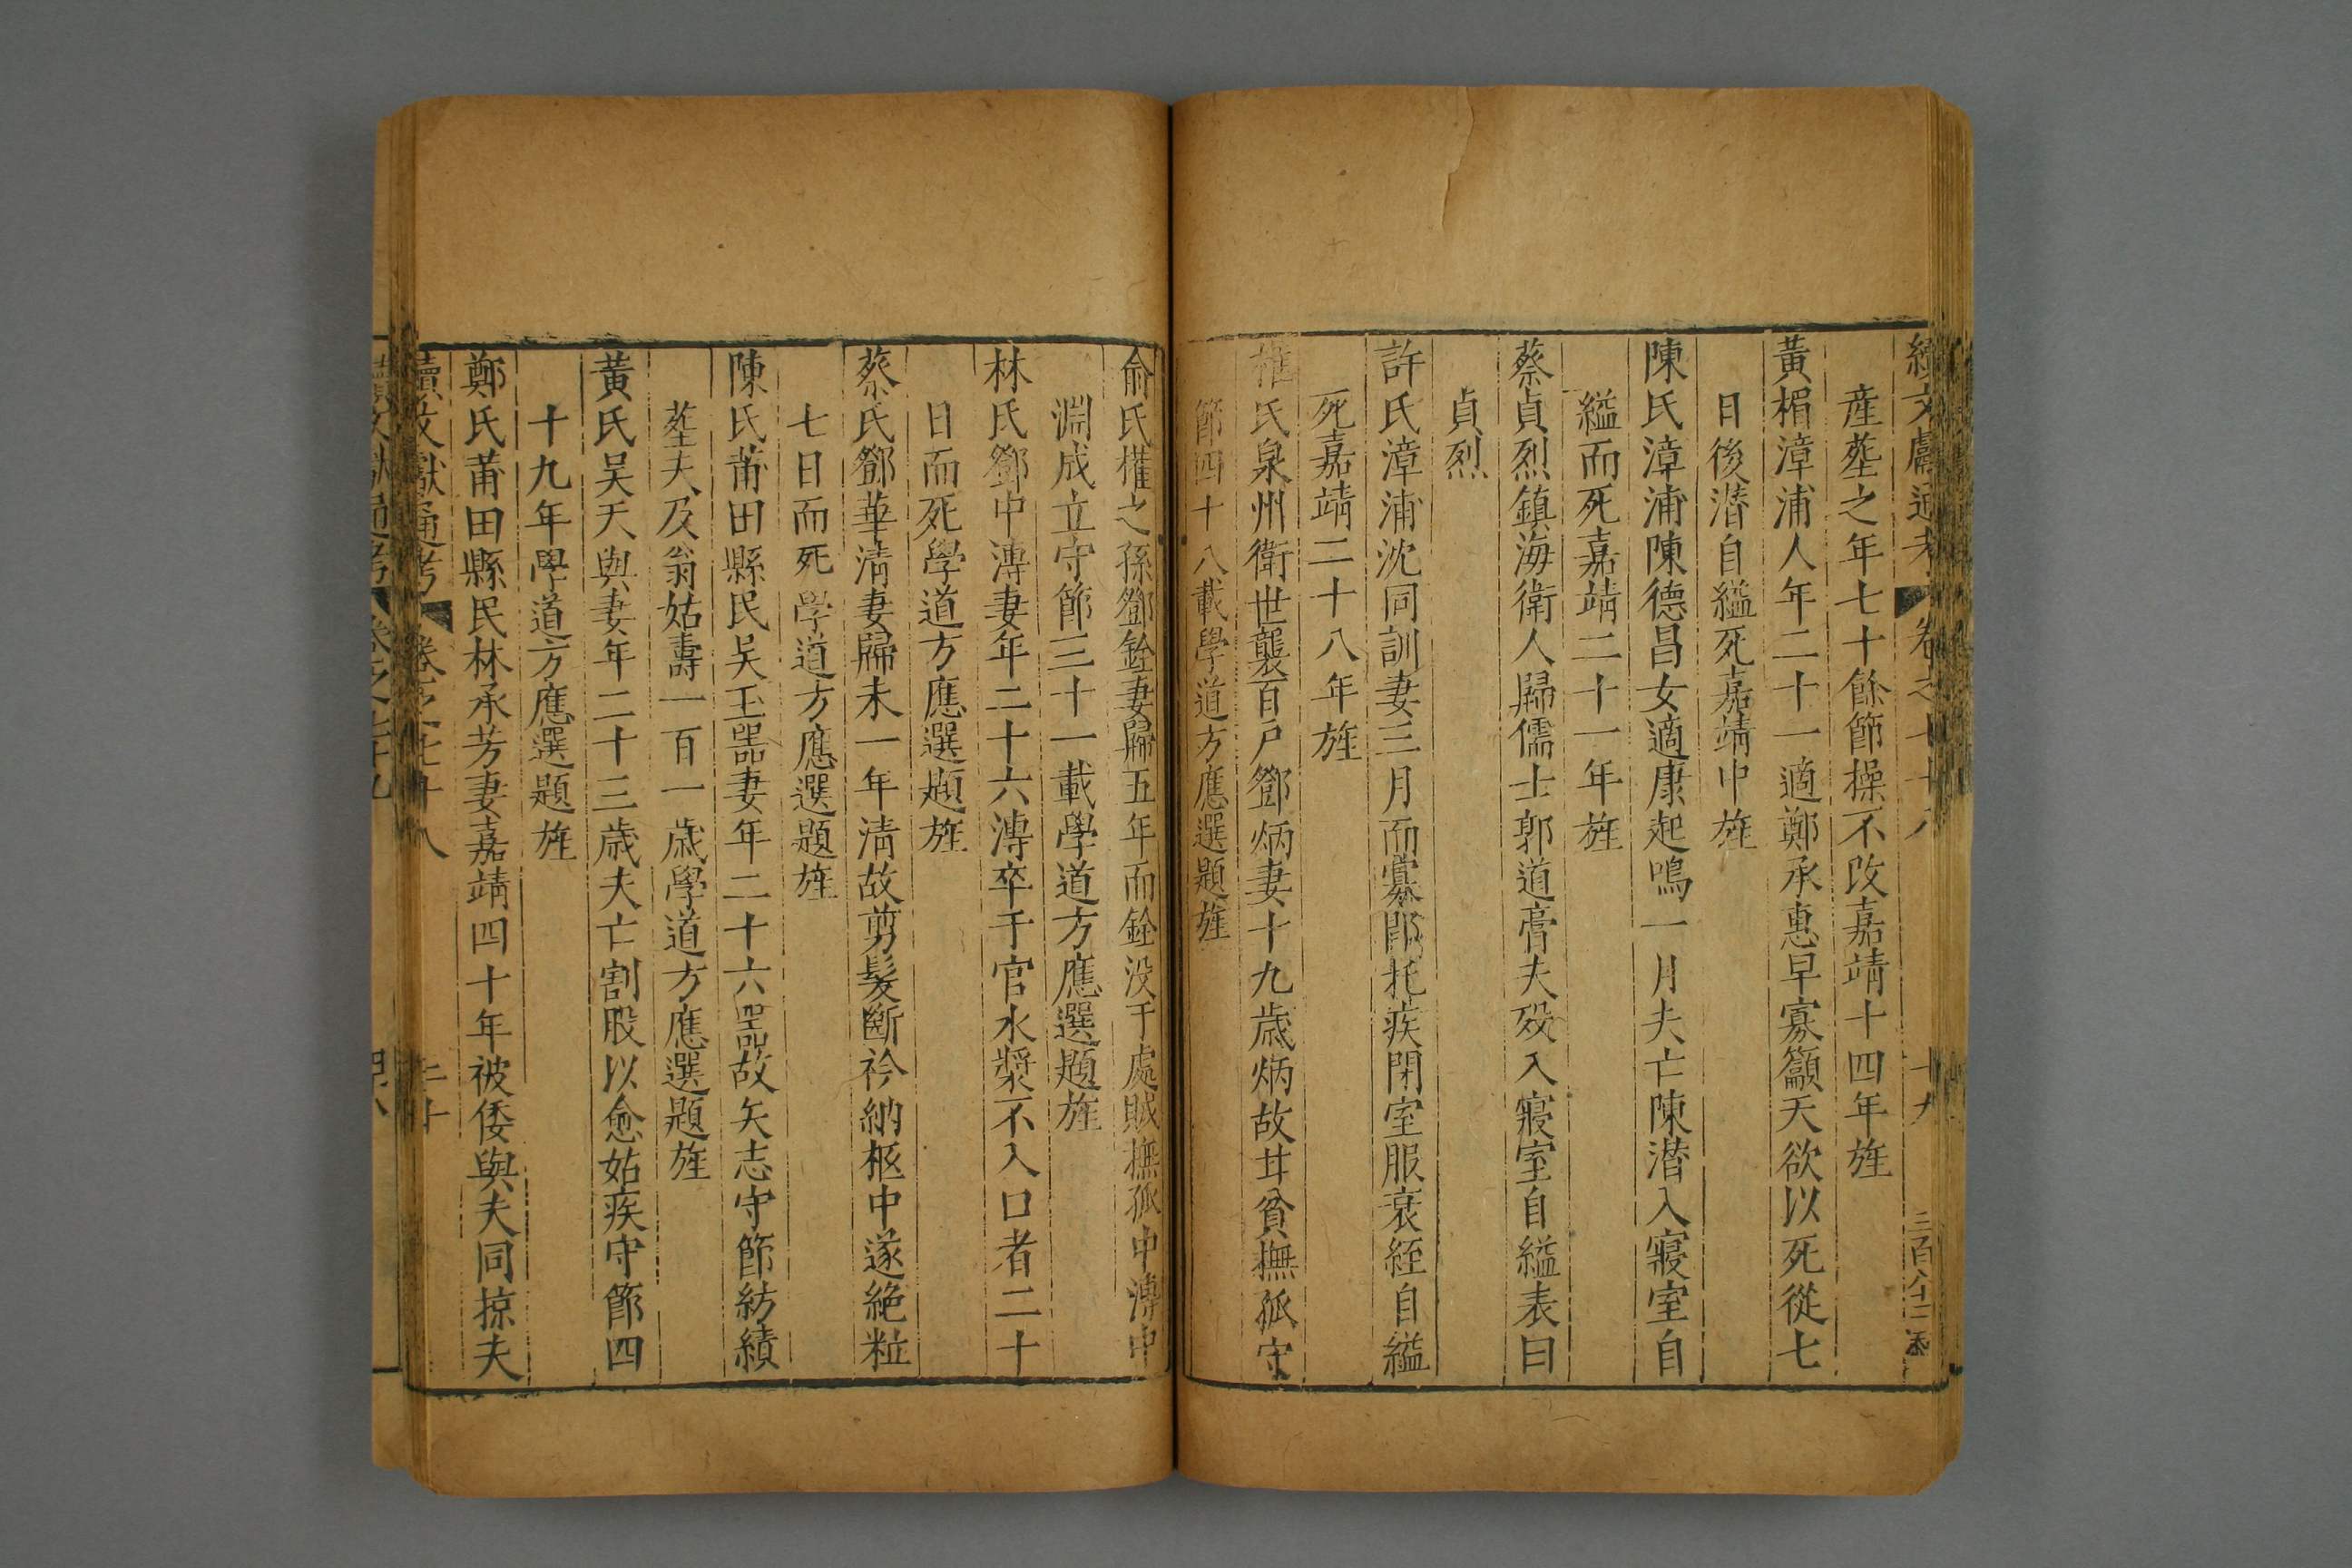 續文獻通考 卷之七十八 十九
產塟之年七十餘節操不改嘉靖十四年旌
黃楣漳浦人年二十一適鄭承惠早寡籲天欲以死從七
日後潜自縊死嘉靖中旌
陳氏漳浦陳德昌女適康起鳴一月夫亡陳潜入寢室自
縊而死嘉靖二十一年旌
蔡貞烈鎮海衛人歸儒士郭道膏夫歿入寢室自縊表曰
貞烈
許氏漳浦沈同訓妻三月而寡郎托疾閉室服衰絰自縊
死嘉靖二十八年旌
權氏泉州衛世襲百戶鄧炳妻十九歲炳故甘貧撫孤守
節四十八載學道方應選題旌
俞氏權之孫鄧銓妻歸五年而銓没于處賊撫孤中溥中
淵成立守節三十一載學道方應選題旌
林氏鄧中溥妻年二十六溥卒于官水漿不入口者二十
日而死學道方應選題旌
蔡氏鄧華淸妻歸未一年淸故剪髮斷衿納柩中遂絕粒
七日而死學道方應選題旌
陳氏莆田縣民吴玉噐妻年二十六噐故矢志守節紡績
塟夫及翁姑壽一百一歲學道方應選題旌
黃氏吴天與妻年二十三歲夫亡割股以愈姑疾守節四
十九年學道方應選題旌
鄭氏莆田縣民林承芳妻嘉靖四十年被倭與夫同掠夫
續文獻通考 卷之七十八 二十